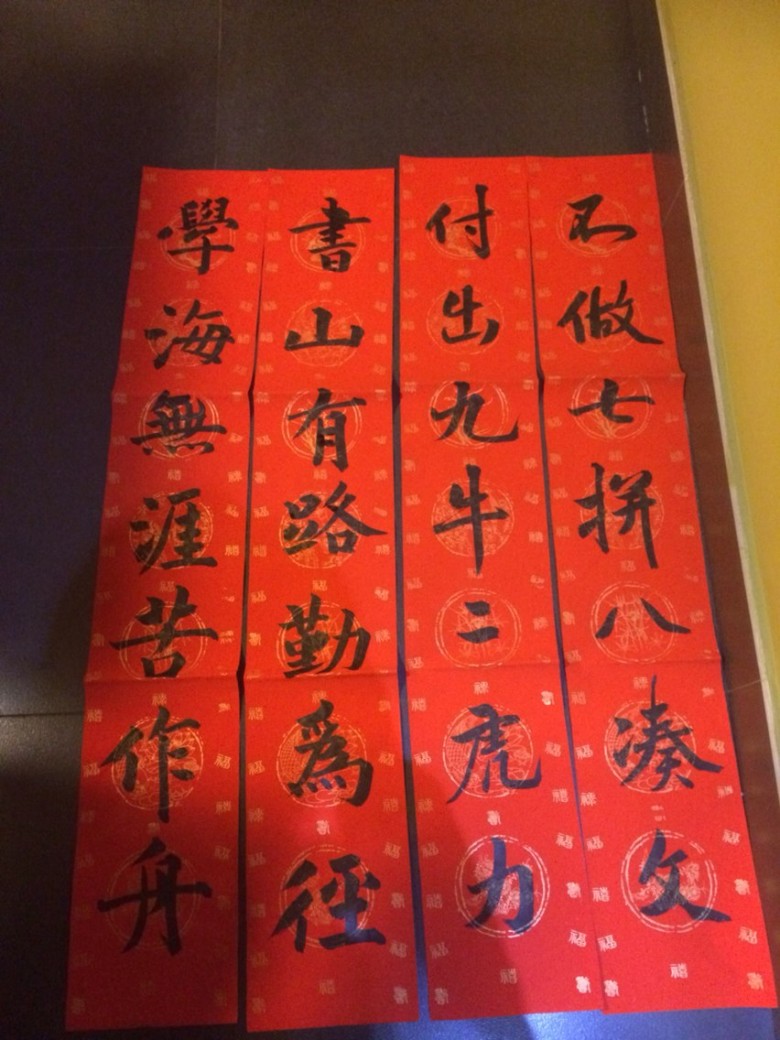 不做七拼八凑文
付出九牛二虎力
書山有路勤為徑
學海無涯苦作舟